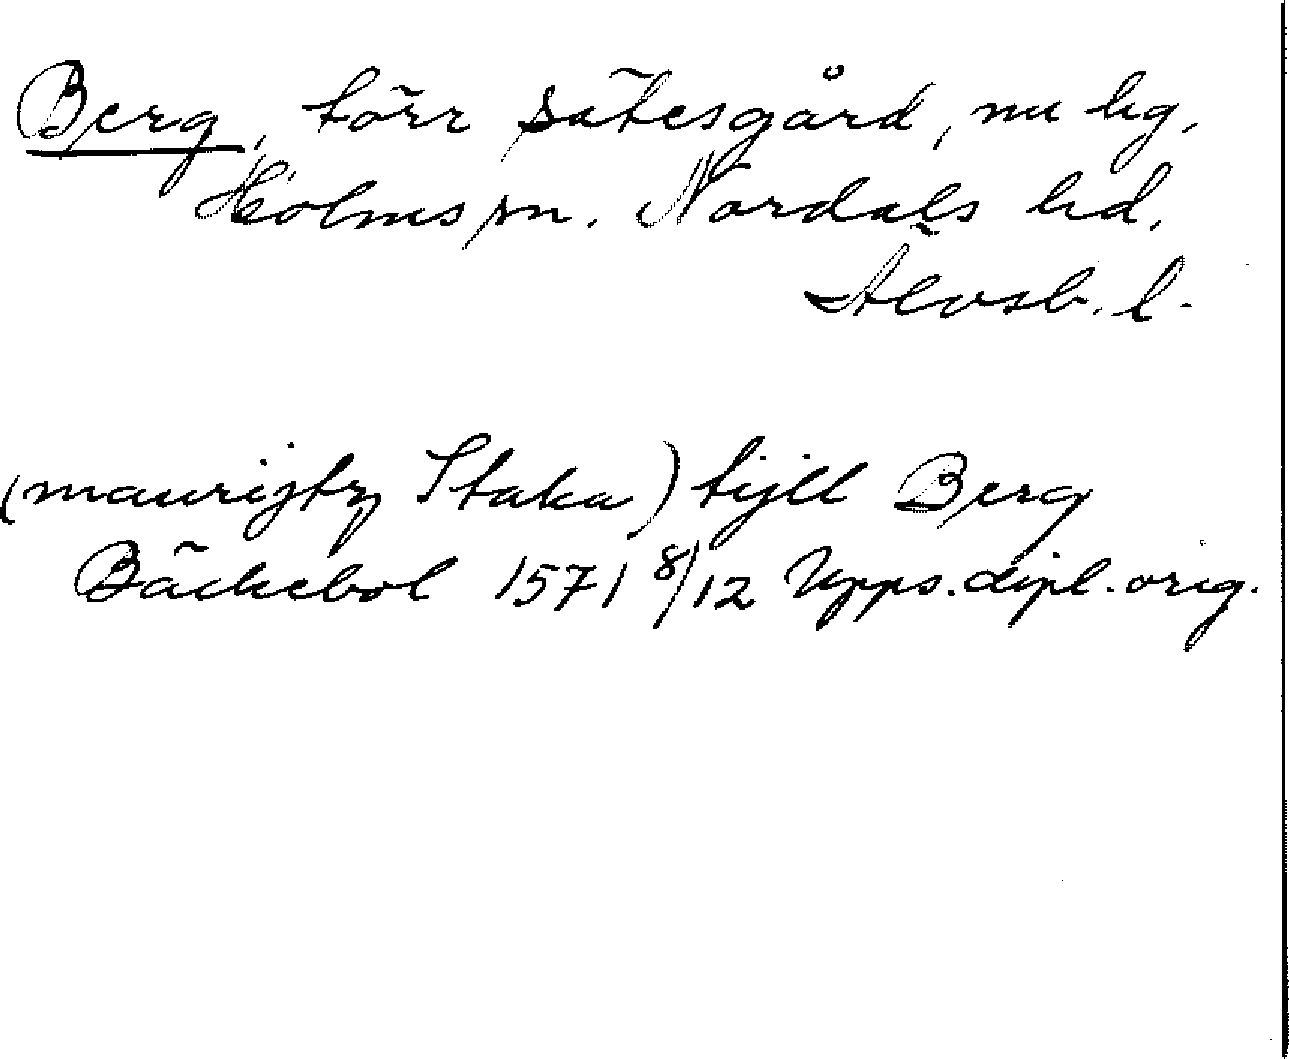 Berg, förr sätesgård, nu hg,
Holms sn. Nordals hd.
Älvsb. l.
(maurijtz Staka) tijll Berg
Bäckebol 1571 8/12 Upps. dipl. orig.